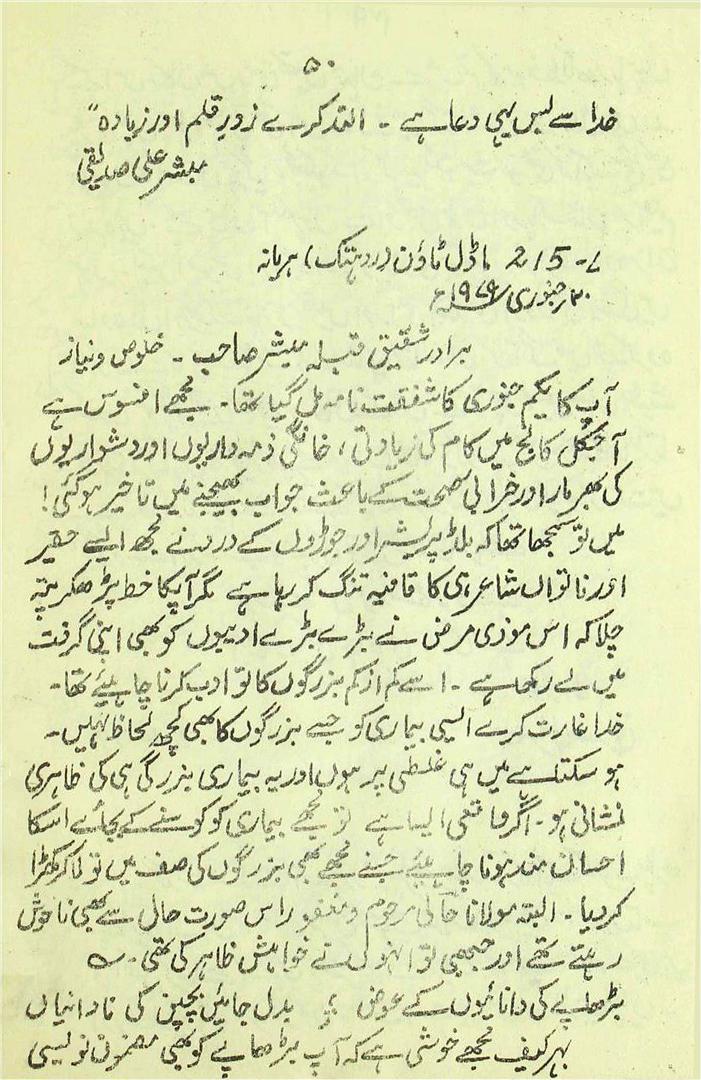 ۵۰
خدا سے بس یہی دعا ہے ۔ اللہ کرے زورِ قلم اور زیادہ"
مبشر علی صدیقی
215-L ماڈل ٹاؤن (روہتک) ہریانہ
۳۰؍جنوری ۱۹۷۹ء
برادر شفیق قبلہ مبشر صاحب ۔ خلوص و نیاز
آپ کا یکم جنوری کا شفقت نامہ مل گیا تھا۔ مجھے افسوس ہے
آجکل کالج میں کام کی زیادتی، خانگی ذمہ داریوں اور دشواریوں
کی بھرمار اور خرابی صحت کے باعث جواب بھیجنے میں تاخیر ہو گئی!
میں تو سمجھا تھا کہ بلڈ پریشر اور جوڑوں کے درد نے مجھ ایسے حقیر
اور ناتواں شاعر ہی کا قافیہ تنگ کر رہا ہے مگر آپکا خط پڑھکر پتہ
چلا کہ اس موذی مرض نے بڑے بڑے ادیبوں کو بھی اپنی گرفت
میں لے رکھا ہے ۔ اسے کم از کم بزرگوں کا تو ادب کرنا چاہیئے تھا۔
خدا غارت کرے ایسی بیماری کو جسے بزرگوں کا بھی کچھ لحاظ نہیں۔
ہو سکتا ہے میں ہی غلطی پر ہوں اور یہ بیماری بزرگی ہی کی ظاہری
نشانی ہو۔ اگر واقعی ایسا ہے تو مجھے بیماری کو کوسنے کے بجائے اسکا
احسان مند ہونا چاہیئے جسنے مجھے بھی بزرگوں کی صف میں تو لا کر کھڑا
کر دیا ۔ البتہ مولانا حالی مرحوم و مغفور اس صورت حال سے بھی ناخوش
رہتے تھے اور جبھی تو انہوں نے خواہش ظاہر کی تھی ۔ ؎
بڑھاپے کی دانائیوں کے عوض ؛ بدل جائیں بچپن کی نادانیاں
بہر کیف مجھے خوشی ہے کہ آپ بڑھاپے کو بھی مضمون نویسی